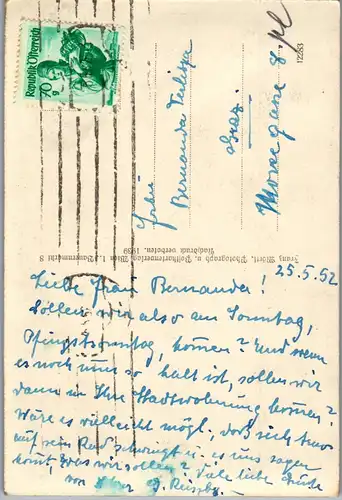 Republik Österreich
70
g
12283
Frau
Bernanda
Graz
Franz Mörtl, Photograph u. Postkartenverlag Wien I., Bauernmarkt 8
Nachdruck verboten. 1939
25.5.52
Liebe Frau Bernanda!
Sollen wir also am Sonntag,
Pfingstsonntag, kommen? Und wenn
es noch immer so kalt ist, sollen wir
dann in Ihre Stadtwohnung kommen?
Wäre es vielleicht mögl., daß sich
auf sein Rad schwingt u. es uns sagen
kommt, was wir sollen? Viele liebe Grüße
von